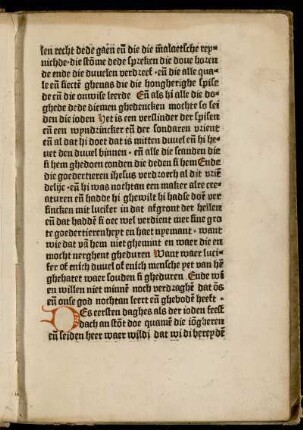 len recht dede gaen eñ die die malaetsche rey-
nichde· die stōme dede spreken die doue horen
de ende die duuelen verdreef ·eñ die alle qua-
le eñ siecte ghenas die die hongherighe spise
de eñ die onwise leerde Eñ als hi alle die do-
ghede dede diemen ghedencken mochte so sei
den die ioden Het is een verslinder der spisen
eñ een wyndrincker eñ der sondaren vrient
eñ al dat hi doet dat is mitten duuel eñ hi he-
uet den duuel binnen ·eñ alle die scanden die
si hem ghedoen conden die deden si hem Ende
die goedertieren ihesus verdroech al dit vriē-
delijc ·eñ hi was nochtan een maker alre cre-
aturen eñ hadde hi ghewilt hi hadse doē ver
sincken mit lucifer in dat afgront der hellen
eñ dat hadde si oec wel verdient mer sine gro
te goedertierenheyt en haet nyemant· want
wie dat vā hem niet ghemint en waer die en
mocht nerghent gheduren Want waer luci-
fer of enich duuel of enich mensche yet van hē
ghehatet waer souden si gheduren Ende wi
en willen niet minnē noch verdraghē dat ōs
eñ onse god nochtan leert eñ ghebodē heeft·
DEs eersten daghes als der ioden feest
dach an stōt doe quamē die iōgherē
eñ seiden heer waer wilstu dat wi di bereydē